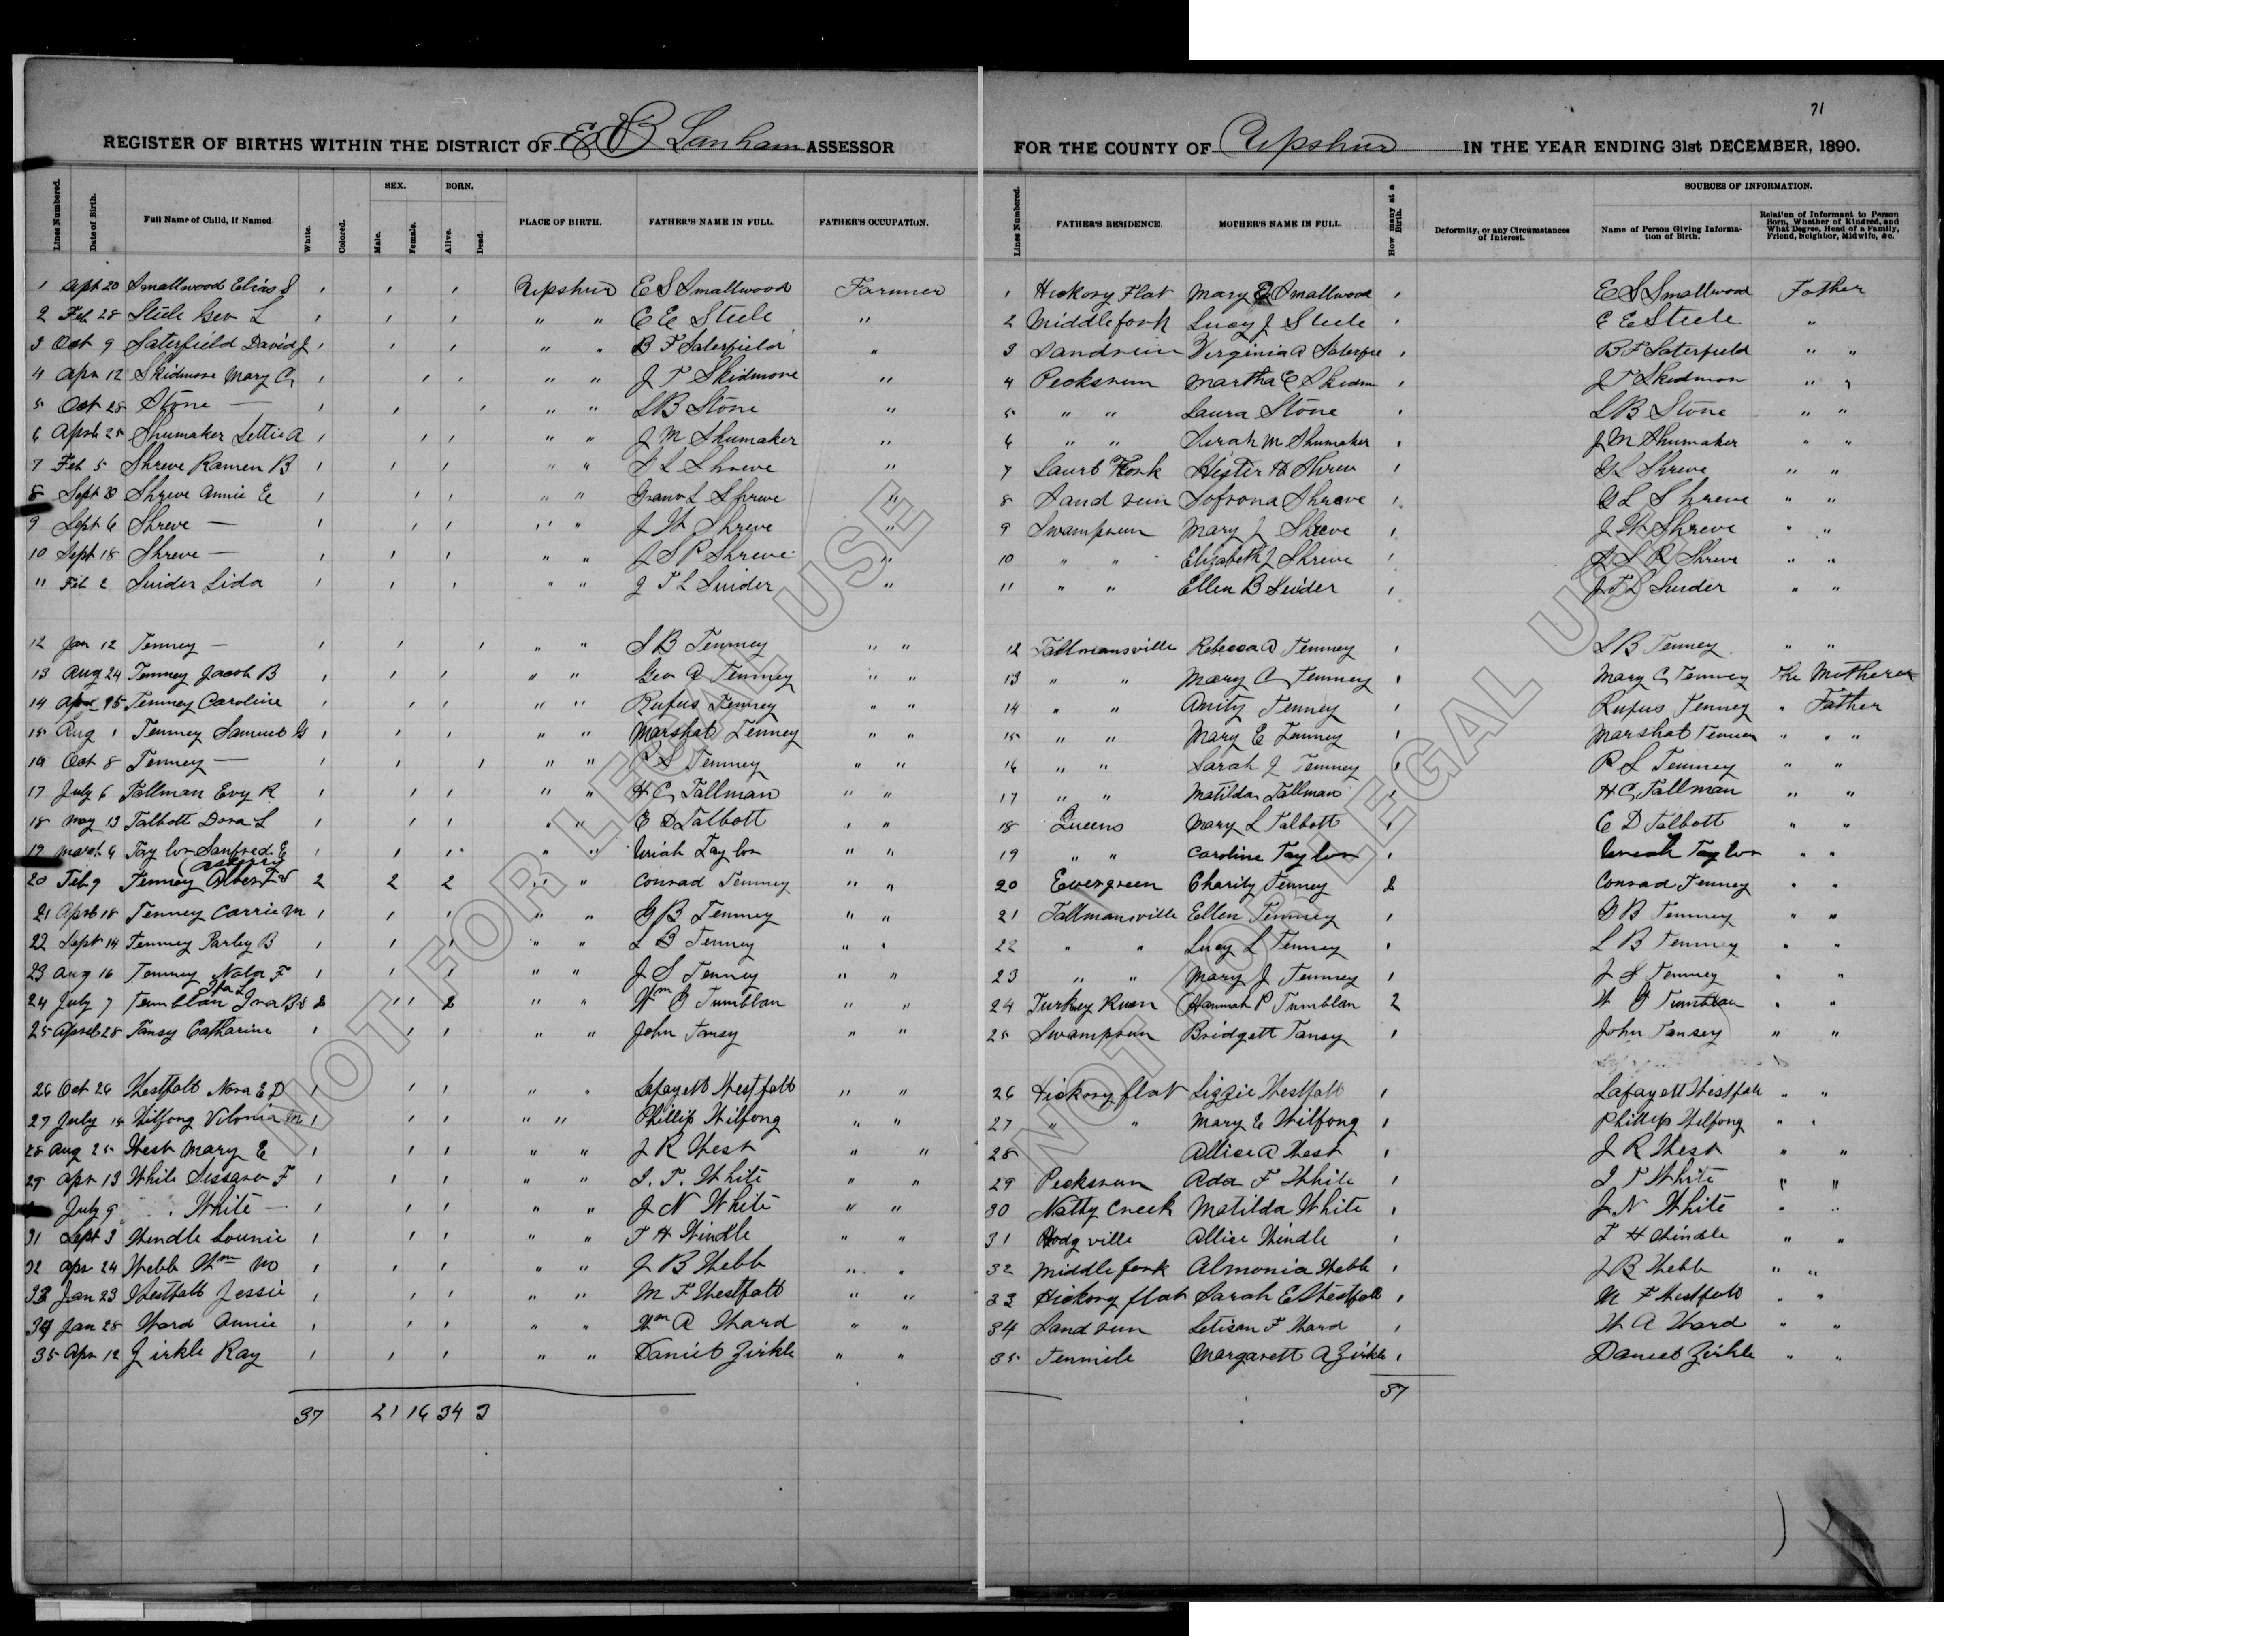 71
REGISTER OF BIRTHS WITHIN THE DISTRICT OF E B Lanham ASSESSOR FOR THE COUNTY OF Upshur IN THE YEAR ENDING 31st DECEMBER, 1890.
Lines Numbered. Date of Birth. Full Name of Child, if Named. White. Colored. SEX. Male. Female. BORN. Alive. Dead. PLACE OF BIRTH. FATHER'S NAME IN FULL. FATHER'S OCCUPATION. Lines Numbered. FATHER'S RESIDENCE. MOTHER'S NAME IN FULL. How many at a Birth. Deformity, or any Circumstances of Interest. SOURCES OF INFORMATION. Name of Person Giving Information of Birth. Relation of Informant to Person Born, Whether of Kindred, and What Degree, Head of a Family, Friend, Neighbor, Midwife, &c.
1 Apr 20 Smallwood Elias S 1 1 1 Upshur E S Smallwood Farmer 1 Hickory Flat Mary E Smallwood 1 E S Smallwood Father
2 Feb 28 Steele Geo L 1 1 1 " " C E Steele " 2 Middlefork Lucy J Steele 1 C E Steele "
3 Oct 9 Saterfield David J 1 1 1 " " B F Saterfield " 3 Sandrun Virginia A Saterfee 1 B F Saterfield " "
4 Apr 12 Skidmore Mary C 1 1 1 " " J T Skidmore " 4 Pecksrun Martha E Skidm 1 J T Skidmon " "
5 Oct 25 Stone — 1 1 1 " " L B Stone " 5 " " Laura Stone 1 L B Stone " "
6 April 25 Shumaker Lettie A 1 1 1 " " J M Shumaker " 6 " " Sarah M Shumaker 1 J M Shumaker " "
7 Feb 5 Shreve Ramen B 1 1 1 " " G L Shreve " 7 Laurl Fork Hester Shrev 1 G L Shreve " "
8 Sept Shreve Annie E 1 1 1 " " Granv L Shreve " 8 Sand run Sofrona Shreve 1 G L Shreve " "
9 Sept 6 Shreve — 1 1 1 " " J W Shreve " 9 Swamprun Mary J Shreve 1 J W Shreve " "
10 Sept 18 Shreve — 1 1 1 " " J S P Shreve " 10 " " Elizabeth J Shreve 1 Shreve " "
11 Feb 2 Snider Lida 1 1 1 " " J T L Snider " 11 " " Ellen B Snider 1 J T L Snider " "
12 Jan 12 Tenney — 1 1 1 " " S B Tenney " " 12 Tallmansville Rebecca A Tenney 1 S B Tenney " "
13 Aug 24 Tenney Jacob B 1 1 1 " " Geo A Tenney " " 13 " " Mary C Tenney 1 Mary C Tenney The Mother
14 Apr Tenney Caroline 1 1 1 " " Rufus Tenney " " 14 " " Amity Tenney 1 Rufus Tenney " Father
15 Aug 1 Tenney Samuel G 1 1 1 " " Marshal Tenney " " 15 " " Mary E Tenney 1 Marshal Tenney " " "
16 Oct 8 Tenney — 1 1 1 " " R S Tenney " " 16 " " Sarah J Tenney 1 R S Tenney " "
17 July 6 Tallman Evy R 1 1 1 " " H C Tallman " " 17 " " Matilda Tallman 1 H C Tallman " "
18 May 13 Talbott Dora L 1 1 1 " " E D Talbott " " 18 Queens Mary L Talbott 1 E D Talbott " "
19 March Taylor Sanford E 1 1 1 " " Uriah Taylor " " 19 " " Caroline Taylor 1 Uriah Taylor " "
20 Feb 9 Tenney Asberry Albert & 2 2 2 " " Conrad Tenney " " 20 Evergreen Charity Tenney 2 Conrad Tenney " "
21 April 18 Tenney Carrie M 1 1 1 " " G B Tenney " " 21 Tallmansville Ellen Tenney 1 G B Tenney " "
22 Sept 14 Tenney Parley B 1 1 1 " " L B Tenney " " 22 " " Lucy L Tenney 1 L B Tenney " "
23 Aug 16 Tenney Nola F 1 1 1 " " J S Tenney " " 23 " " Mary J Tenney 1 J S Tenney " "
24 July 7 Tumblan Ira B & 2 11 2 " " Wm G Tumblan " " 24 Turkey Run Hannah P Tumblan 2 W G Tumblan " "
25 April 28 Tansy Catharine 1 1 1 " " John Tansy " " 25 Swamprun Bridgett Tansy 1 John Tansey " "
26 Oct 26 Westfall Nora E D 1 1 1 " " Lafayett Westfall " " 26 Hickory flat Lizzie Westfall 1 Lafayett Westfall " "
27 July Wilfong Vilonia M 1 1 1 " " Phillip Wilfong " " 27 " " Mary E Wilfong 1 Phillip Wilfong " "
28 Aug 25 West Mary E 1 1 1 " " J R West " " 28 Allice A West 1 J R West " "
29 Apr 13 White F 1 1 1 " " I. T. White " " 29 Pecksrun Ada F White 1 I T White " "
July 9 White — 1 1 1 " " J N White " " 30 Natty Creek Matilda White 1 J N White " "
31 Sept 3 Windle Lounie 1 1 1 " " T H Windle " " 31 Hodgville Allice Windle 1 T H Windle " "
32 Apr 24 Webb Wm Mo 1 1 1 " " J B Webb " " 32 Middle fork Almonia Webb 1 J B Webb " "
33 Jan 23 Westfall Jessie 1 1 1 " " M F Westfall " " 33 Hickory flat Sarah E Westfall 1 M F Westfall " "
34 Jan 28 Ward Annie 1 1 1 " " Wm A Ward " " 34 Sand run Letisan F Ward 1 W A Ward " "
35 Apr 12 Zirkle Ray 1 1 1 " " Daniel Zirkle " " 35 Tenmile Margarett A Zirkle 1 Daniel Zirkle " "
37 21 16 34 3 37
NOT FOR LEGAL USE
NOT FOR LEGAL USE